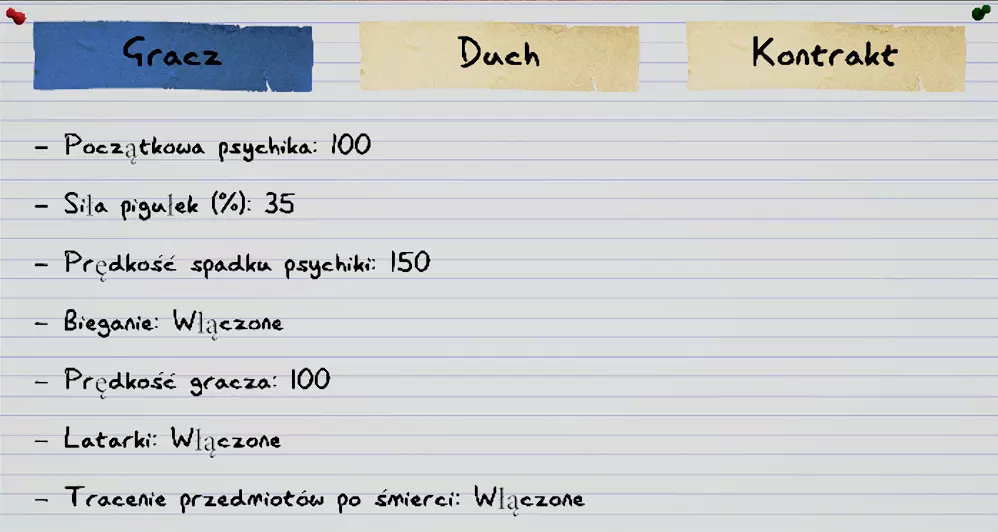 Gracz Duch Kontrakt
- Początkowa psychika: 100
- Siła pigułek (%): 35
- Prędkość spadku psychiki: 150
- Bieganie: Włączone
- Prędkość gracza: 100
- Latarki: Włączone
- Tracenie przedmiotów po śmierci: Włączone